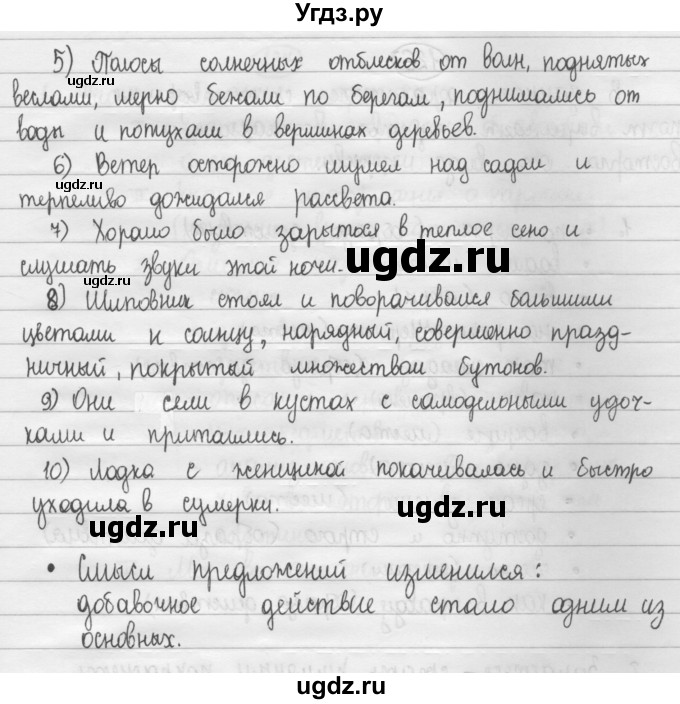 Угдз.ру
5) Полосы солнечных отблесков от волн, поднятых
веслами, мерно бежали по берегам, поднимались от
воды и потухали в вершинах деревьев.
ugdz.ru
6) Ветер осторожно шумел над садом и
ugdz.ru
терпеливо дожидался рассвета.
7) Хорошо было зарыться в теплое сено и
слушать звуки этой ночи.
ugdz.ru
8) Шиповник стоял и поворачивался большими
цветами к солнцу, нарядный, совершенно празд-
ничный, покрытый множеством бутонов.
9) Они сели в кустах с самодельными удоч-
ками и притаились.
ugdz.ru
10) Лодка с женщиной покачивалась и быстро
уходила в сумерки.
ugdz.ru
ugdz.ru
• Смысл предложений изменился:
добавочное действие стало одним из
основных.
ugdz.ru
ugdz.ru